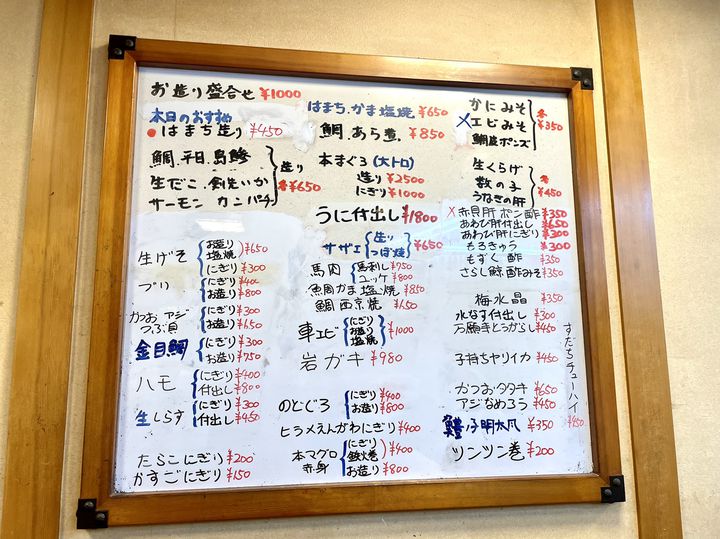 お造り盛合せ ¥1000
本日のおすすめ
はまち造り ¥450
鯛.平目.島鯵
生だこ.剣先いか
サーモン カンパチ
造り
各¥650
生げそ
お造り
塩焼
¥650
にぎり ¥300
ブリ
にぎり ¥400
お造り ¥800
かつお アジ
つぶ貝
にぎり ¥300
お造り ¥650
金目鯛
にぎり ¥300
お造り ¥750
ハモ
にぎり ¥400
付出し ¥800
生しらす
にぎり ¥300
付出し ¥450
たらこにぎり ¥200
かすごにぎり ¥150
はまち.かま塩焼 ¥650
鯛.あら煮. ¥850
本まぐろ (大トロ)
造り ¥2500
にぎり ¥1000
うに付出し ¥1800
サザエ
造り
つぼ焼
¥650
馬肉
馬刺し ¥950
ユッケ ¥800
魚周かま塩焼 ¥850
鯛西京焼 ¥650
車エビ
にぎり
お造り
塩焼
¥1000
岩ガキ ¥980
のどぐろ
にぎり ¥400
お造り ¥800
ヒラメえんがわにぎり ¥400
本マグロ
赤身
にぎり
鉄火巻
¥400
お造り ¥800
かにみそ
×エビみそ
鯛皮ポンズ
各
¥350
生くらげ
数の子
うなぎの肝
各
¥450
×赤貝肝ポン酢 ¥350
あわび肝付出し ¥650
あわび肝にぎり ¥300
もろきゅう ¥300
もずく酢 ¥350
さらし鯨酢みそ ¥350
梅水晶 ¥350
水なす付出し ¥300
万願寺とうがらし ¥450
子持ちヤリイカ ¥450
かつおタタキ ¥650
アジなめろう ¥450
鱧子明太風 ¥350
ツンツン巻 ¥200
すだちチューハイ
¥350